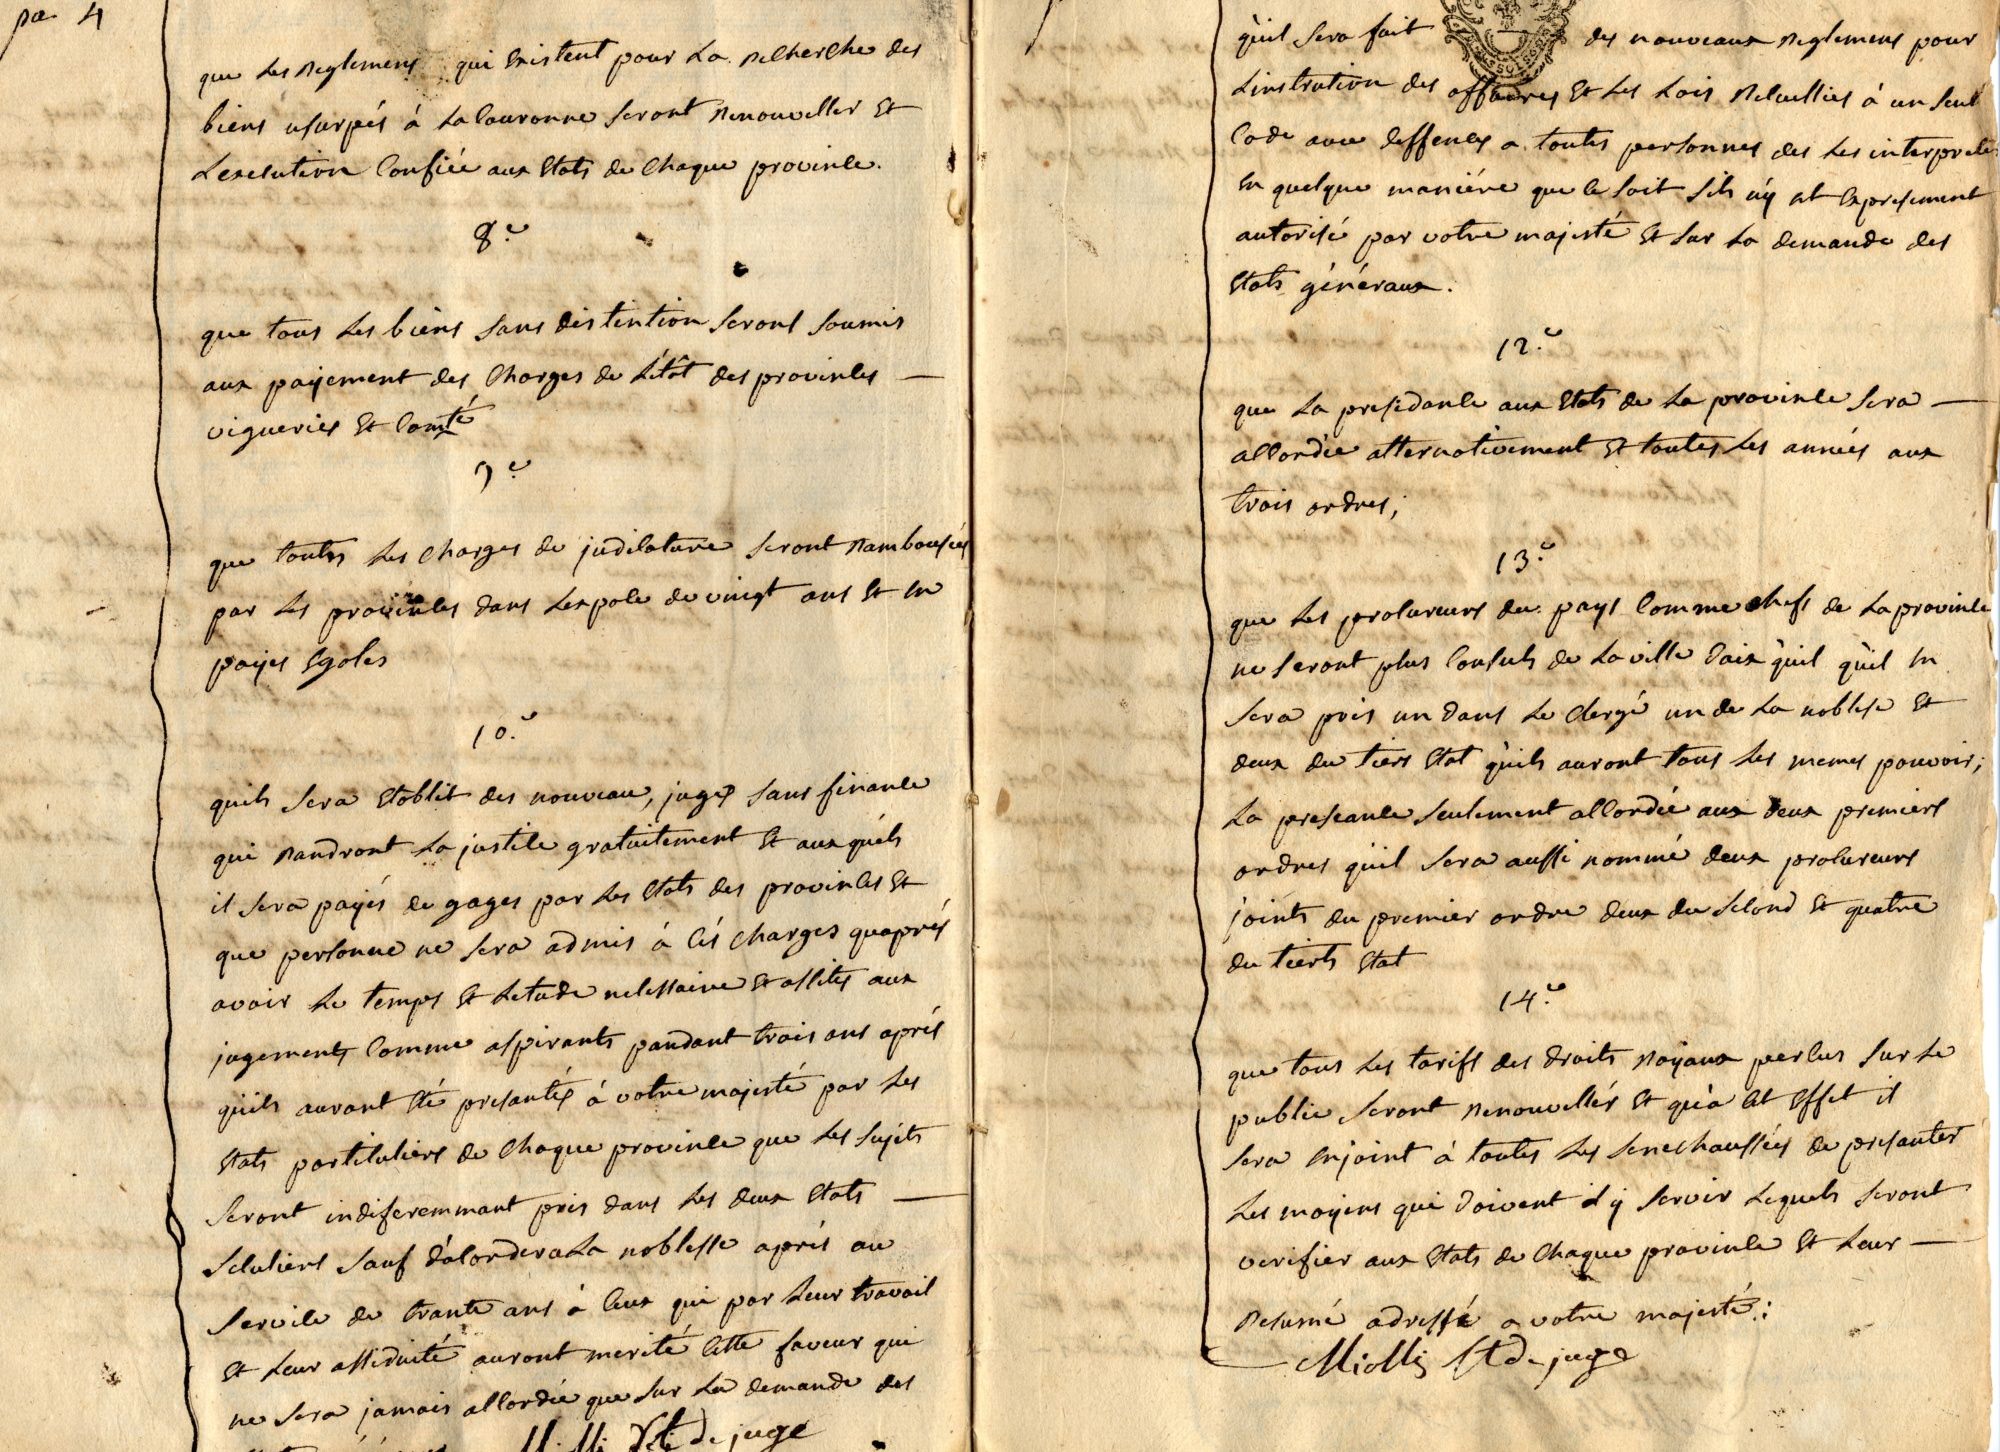 pa 4
que Les Reglemens qui Existent pour La Recherche des
biens usurpés à La Couronne seront Renouveller Et
Lexecution Confiée aux Etats de Chaque province.
8.e
que tous Les biens sans distintion seront soumis
aux payement des Charges de L'étât des provinces —
vigueries Et Comté
9.e
que toutes Les charges de judicature seront Ramboursées
par Les provinces dans Lespace de vingt ans Et En
payes Egales
10.e
quils sera Etablit des nouveau, juges sans finance
qui Randront La justice gratuitement Et aux quéls
il sera payés de gages par Les Etats des provinces Et
que personne ne sera admis à Cés charges quaprés
avoir Le temps Et Letude necessaire Et assités aux
jugements Comme aspirants pandant trois ans aprés
qu'ils auront Eté présantés à votre majesté par Les
Etats particuliers de Chaque province que Les sujets
seront indiferemmant pris dans Les deux Etats —
seculiers sauf d'acorder a La noblesse aprés au
service de trante ans à Ceux qui par Leur travail
Et Leur assiduité auront merité Cette faveur qui
ne sera jamais accordée que sur La demande des
Lt de juge
qu'il sera fait des nouveaux Reglemens pour
Linstrution des affaires Et Les Lois Recuellies à un seul
Code avec deffences a toutes personnes des Les interpreter
En quelque maniére que ce soit sils n'y Et Expresement
autorisé par votre majesté Et sur La demande des
Etats généraux.
12.e
que La presidance aux Etats de La province sera —
accordée alternativement Et toutes Les années aux
trois ordres;
13.e
que Les procureurs du pays Comme chefs de La province
ne seront plus Consuls de La ville daix qu'il qu'il En
sera pris un dans Le clergé un de La noblese Et
deux du tiers Etat qu'ils auront tous Les memes pouvoir;
La preseance seulement accordée aux deux premiers
ordres qu'il sera aussi nommé deux procureurs
joints du premier ordre deux du second Et quatre
du tierts Etat
14.e
que tous Les tarifs des droits Royaux percus sur Le
public seront Renouvellés Et qu'à Cet Effet il
sera Enjoint à toutes Les senechaussées de presanter
Les moyens qui doivent d'y servir Lequels seront
verifier aux Etats de Chaque province Et Leur —
Resumé adressé a votre majesté:
Miollis Lt de juge